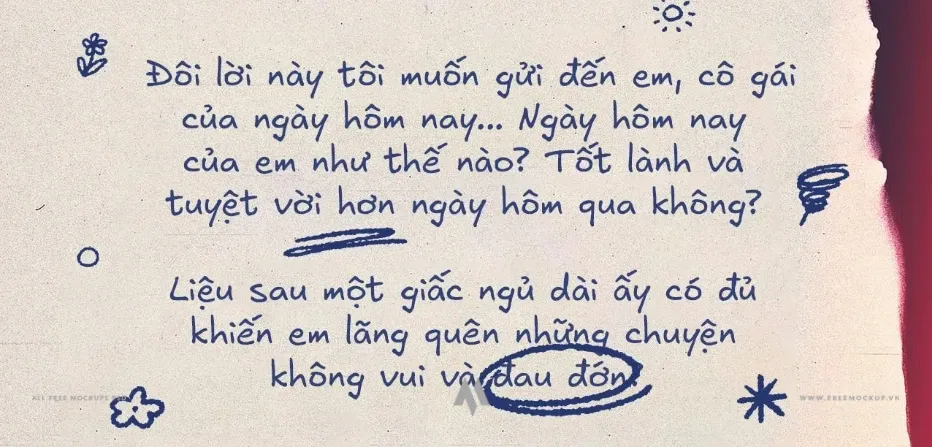 Đôi lời này tôi muốn gửi đến em, cô gái
của ngày hôm nay... Ngày hôm nay
của em như thế nào? Tốt lành và
tuyệt vời hơn ngày hôm qua không?
Liệu sau một giấc ngủ dài ấy có đủ
khiến em lãng quên những chuyện
không vui và đau đớn.
ALL FREE MOCKUPS
WWW.FREEMOCKUP.VN